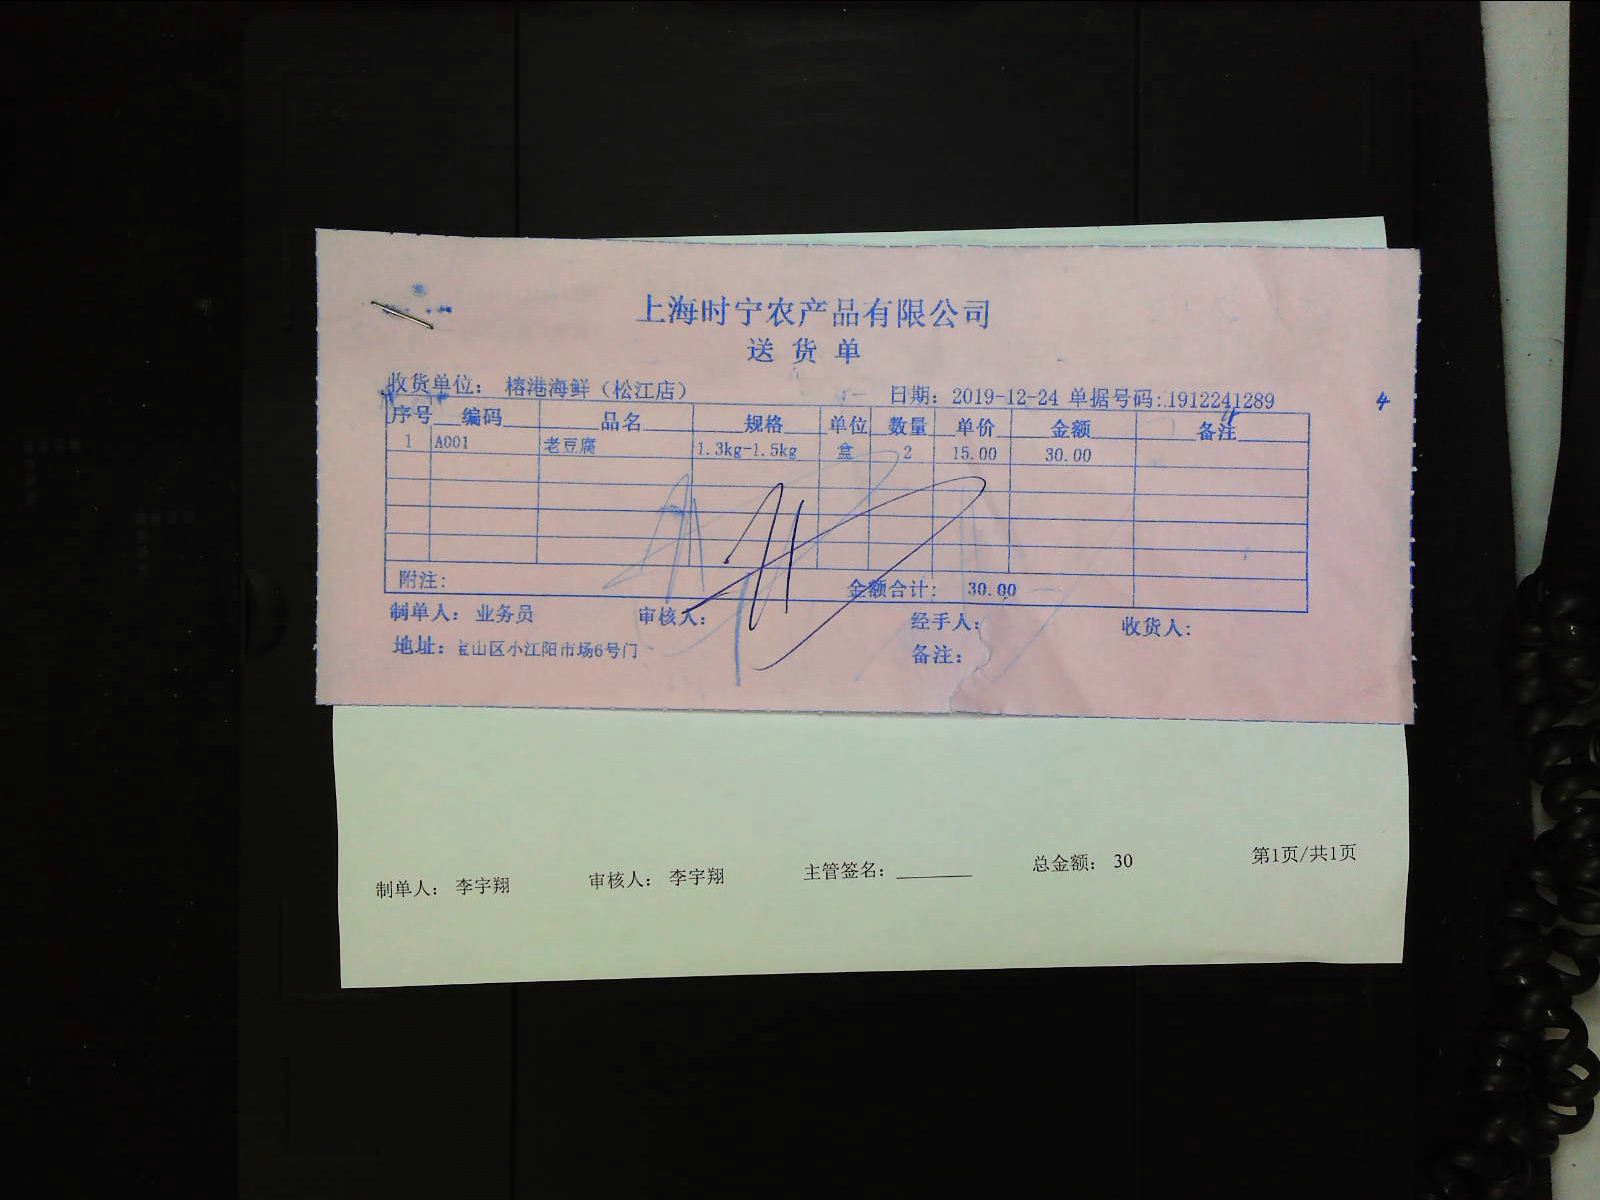 上海时宁农产品有限公司
送货单
收货单位：榕港海鲜（松江店） 日期：2019-12-24 单据号码：1912241289 4
序号 编码 品名 规格 单位 数量 单价 金额 备注
1 A001 老豆腐 1.3kg-1.5kg 盒 2 15.00 30.00
附注： 金额合计： 30.00
制单人：业务员 审核人： 经手人： 收货人：
地址：宝山区小江阳市场6号门 备注：
制单人： 李宇翔 审核人： 李宇翔 主管签名：________ 总金额： 30 第1页/共1页